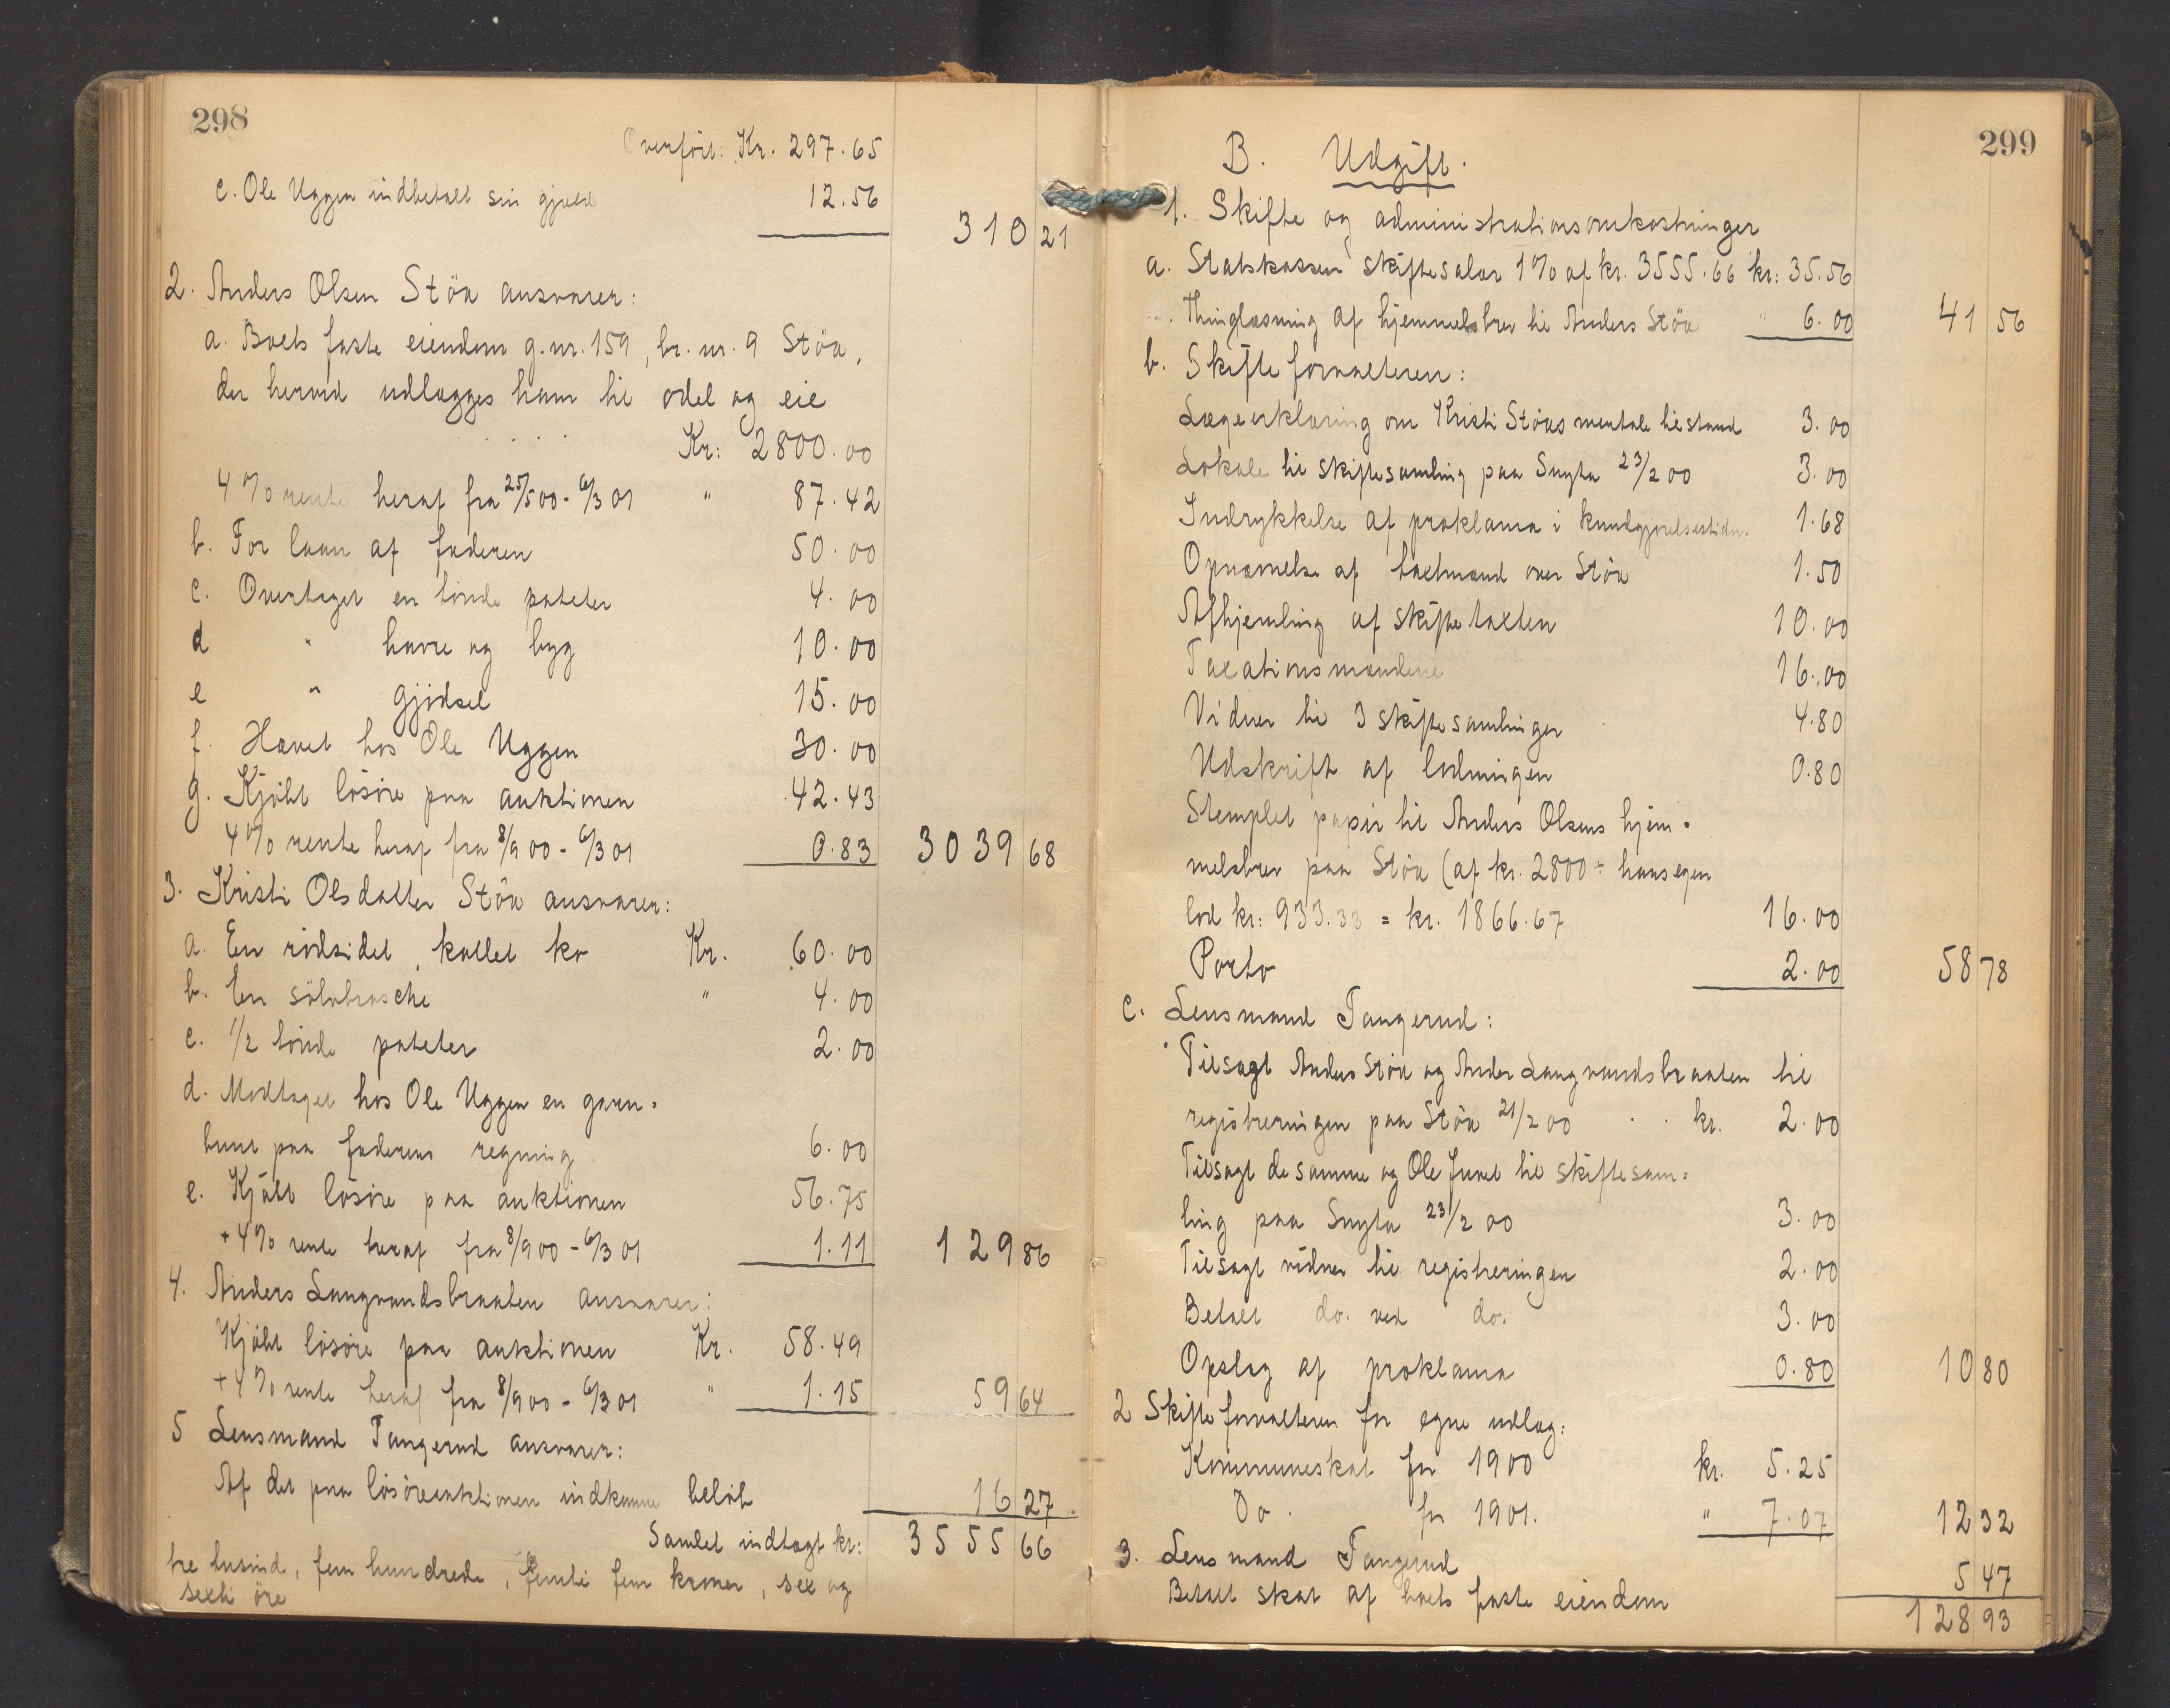 298
Overført: Kr. 297.65
c. Ole Uggen indbetalt sin gjæld 12.56
310 21
2. Anders Olsen Stöa ansvarer:
a. Boets faste eiendom g.nr. 159, br. nr. 9 Stöa,
der herved udlægges ham til odel og eie
Kr: 2800.00
4% rente heraf fra 25/5 00 - 6/3 01 " 87.42
b. For laan af faderen 50.00
c. Overtaget en tönde poteter 4.00
d " havre og byg 10.00
e " gjödsel 15.00
f. Hævet hos Ole Uggen 30.00
g. Kjöbt lösöre paa auktionen 42.43
4% rente heraf fra 8/9 00 - 6/3 01 0.83 3039 68
3. Kristi Olsdatter Stöa ansvarer:
a. En rödsidet, kollet ko Kr. 60.00
b. En sölvbrosche " 4.00
c. 1/2 tönde poteter 2.00
d. Modtaget hos Ole Uggen en garn-
bunt paa faderens regning 6.00
e. Kjöbt lösöre paa auktionen 56.75
+ 4% rente heraf fra 8/9 00 - 6/3 01 1.11 129 86
4. Anders Langvandsbraaten ansvarer:
Kjöbt lösöre paa auktionen Kr. 58.49
+ 4% rente heraf fra 8/9 00 - 6/3 01 " 1.15 59 64
5 Lensmand Tangerud ansvarer:
Af det paa lösöreauktionen indkomne belöb 16 27
Samlet indtægt kr: 3555 66
tre tusind, fem hundrede, femti fem kroner, sex og
sexti öre
299
B. Udgift.
1. Skifte og administrationsomkostninger
a. Statskassen skiftesalær 1% af kr. 3555.66 kr: 35.56
Thinglæsning af hjemmelsbrev til Anders Stöa " 6.00 41 56
b. Skifteforvalteren:
Lægeerklæring om Kristi Stöas mentale tilstand 3.00
Lokale til skiftesamling paa Snyta 23/2 00 3.00
Indrykkelse af proklama i kundgjørelsestidn. 1.68
Opnævnelse af taxtmænd over Stöa 1.50
Afhjemling af skiftetaxten 10.00
Taxationsmændene 16.00
Vidner til 3 skiftesamlinger 4.80
Udskrift af lodningen 0.80
Stemplet papir til Anders Olsens hjem-
melsbrev paa Stöa (af kr. 2800 ÷ hans egen
lod kr: 933.33 = kr. 1866.67 16.00
Porto 2.00 58 78
c. Lensmand Tangerud:
Tilsagt Anders Stöa og Anders Langvandsbraaten til
registreringen paa Stöa 21/2 00 kr. 2.00
Tilsagt de samme og Ole Juvet til skiftesam-
ling paa Snyta 23/2 00 3.00
Tilsagt vidner til registreringen 2.00
Betalt do. ved do. 3.00
Opslag af proklama 0.80 10 80
2 Skifteforvalteren for egne udlæg:
Kommuneskat for 1900 kr. 5.25
Do. for 1901. " 7.07 12 32
3. Lensmand Tangerud
Betalt skat af boets faste eiendom 5 47
128 93